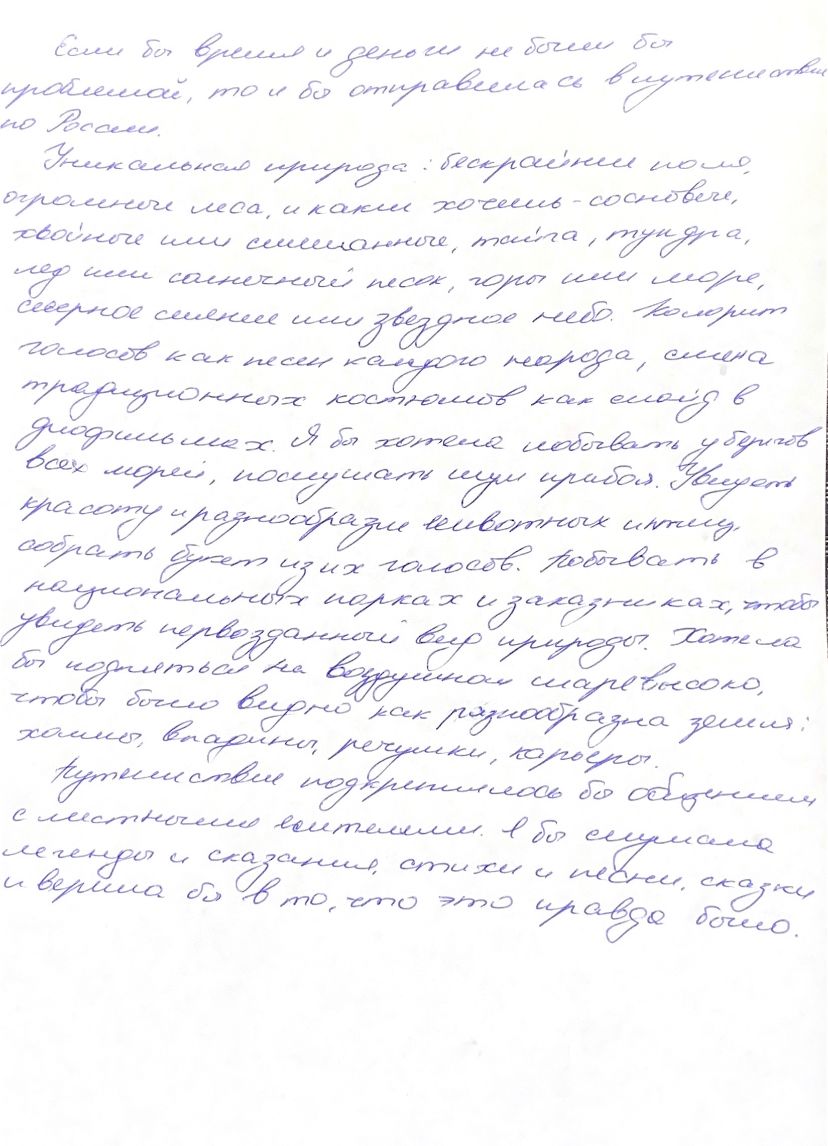 Если бы время и деньги не были бы
проблемой, то я бы отправилась в путешествие
по России.
Уникальная природа: бескрайние поля,
огромные леса, и какие хочешь - сосновые,
хвойные или смешанные, тайга, тундра,
лед или солнечный песок, горы или море,
северное сияние или звездное небо. Колорит
голосов как песен каждого народа, смена
традиционных костюмов как слайд в
диофильмах. Я бы хотела побывать у берегов
всех морей, послушать шум прибоя. Увидеть
красоту и разнообразие животных и птиц,
собрать букет из их голосов. Побывать в
национальных парках и заказниках, чтобы
увидеть первозданный вид природы. Хотела
бы подняться на воздушном шаре высоко,
чтобы было видно как разнообразна земля:
холмы, впадины, речушки, карьеры.
Путешествие подкрепилось бы общением
с местными жителями. Я бы слушала
легенды и сказания, стихи и песни, сказки
и верила бы в то, что это правда было.